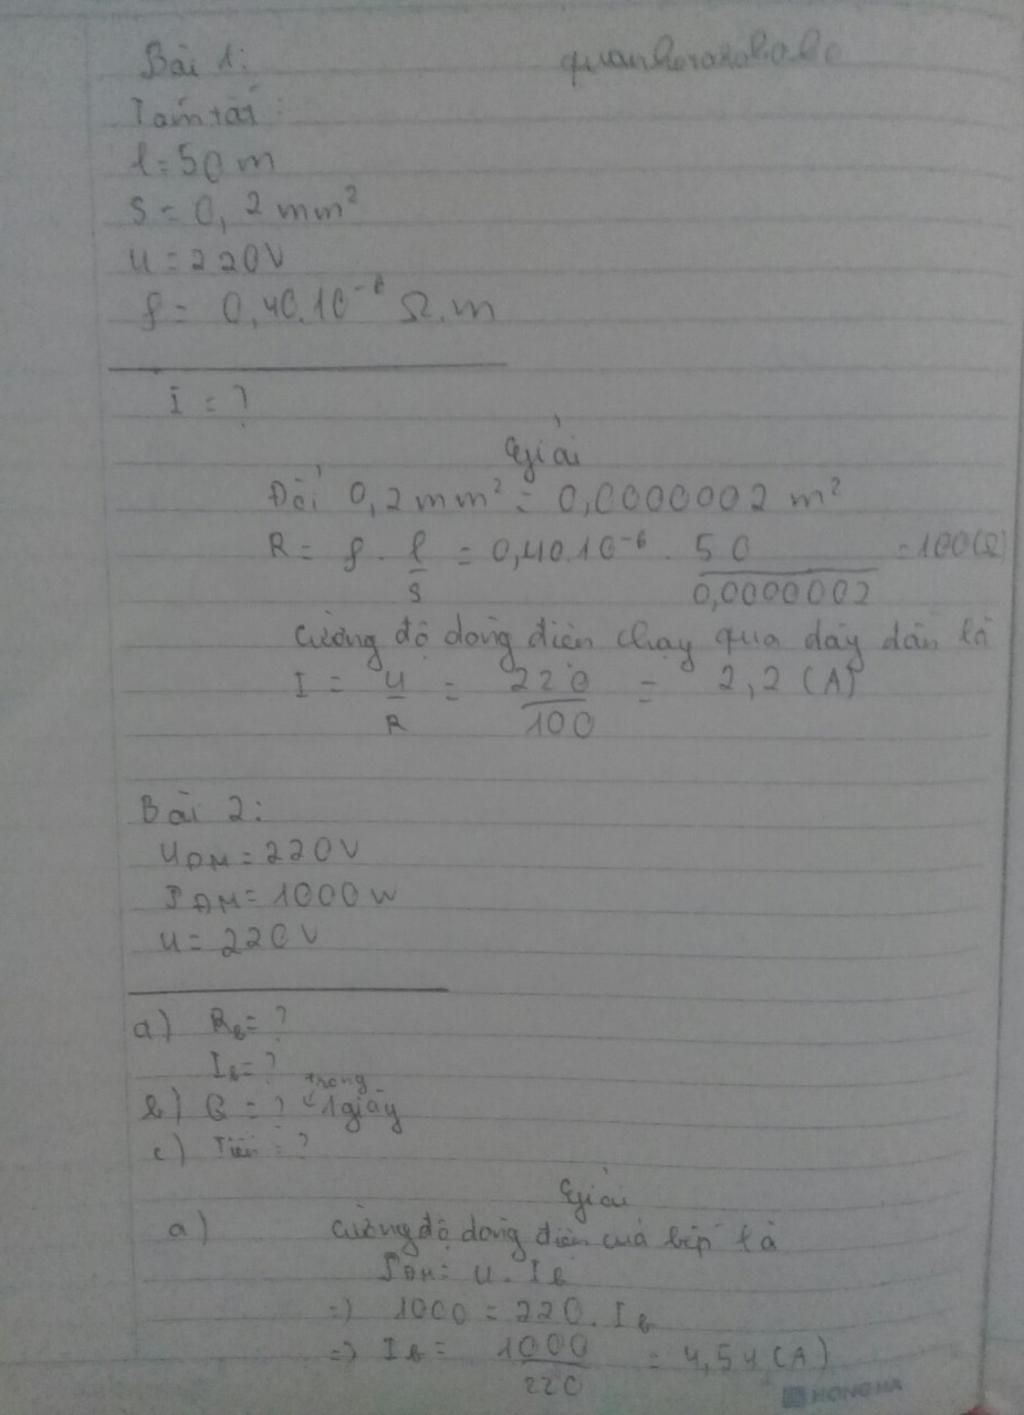 Bài 1:
Tóm tắt:
l=50 m
S = 0,2 mm²
U = 220V
ρ = 0,40.10⁻⁶ Ω.m
I = ?
Giải
Đổi 0,2 mm² = 0,0000002 m²
R = ρ . l/S = 0,40.10⁻⁶ . 50/0,0000002 = 100(Ω)
Cường độ dòng điện chạy qua dây dẫn là
I = U/R = 220/100 = 2,2 (A)
Bài 2:
UĐM = 220V
PĐM = 1000W
U = 220V
a) Rb = ?
Ib = ?
b) Q = ? trong 1 giây
c) Tiền = ?
Giải
a) Cường độ dòng điện của bếp là
PĐM = U . Ib
=> 1000 = 220 . Ib
=> Ib = 1000/220 = 4,54 (A)
HONG HA